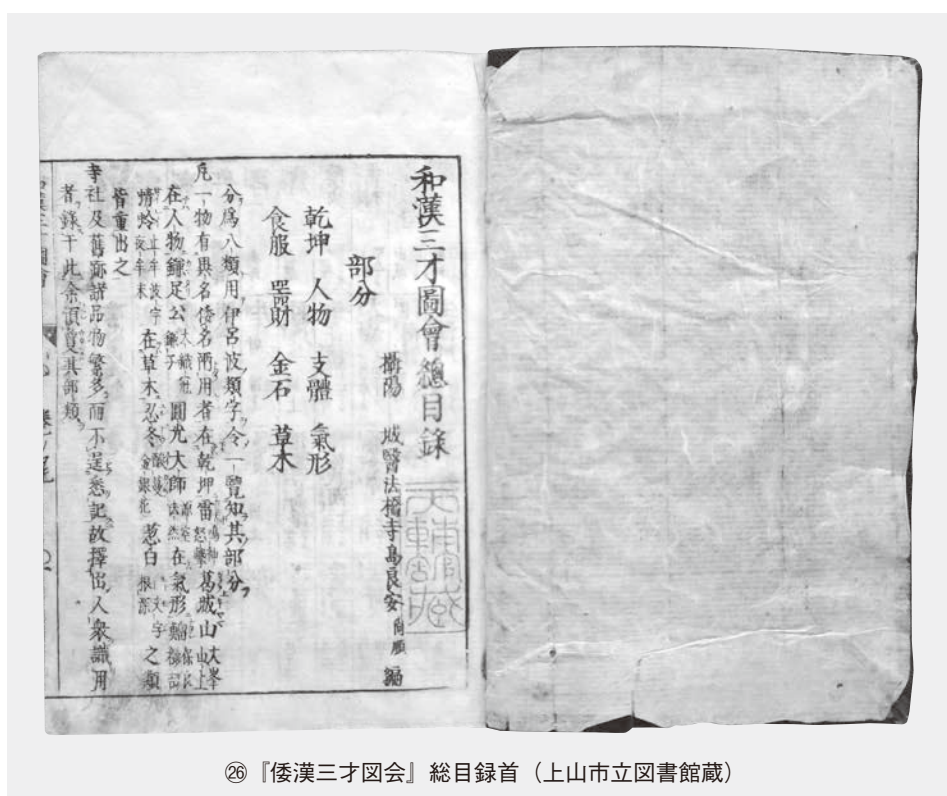 和漢三才圖會總目錄
攝陽 城醫法橋寺島良安尚順 編
部分
乾坤 人物 支體 氣形
食服 器財 金石 草木
分爲八類用伊呂波類字令一覽知其部分
凡一物有異名倭名兩用者在乾坤雷 葛城山
在人物鎌足公 圓光大師 在氣形
蜻蛉 在草木忍冬 金銀花 葱白 根 之類
皆重出之
寺社及舊跡諸品物繁多而不遑悉記故擇出人衆識用
者錄于此余須覓其部類
㉖『倭漢三才図会』総目録首（上山市立図書館蔵）